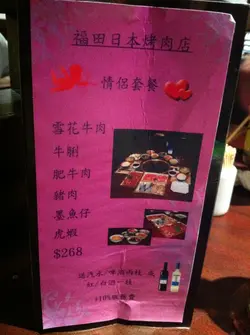 福田日本烤肉店
情侶套餐
雪花牛肉
牛脷
肥牛肉
豬肉
墨魚仔
虎蝦
$268
送汽水/啤酒兩枝 或
紅/白酒一枝
+10%服務費